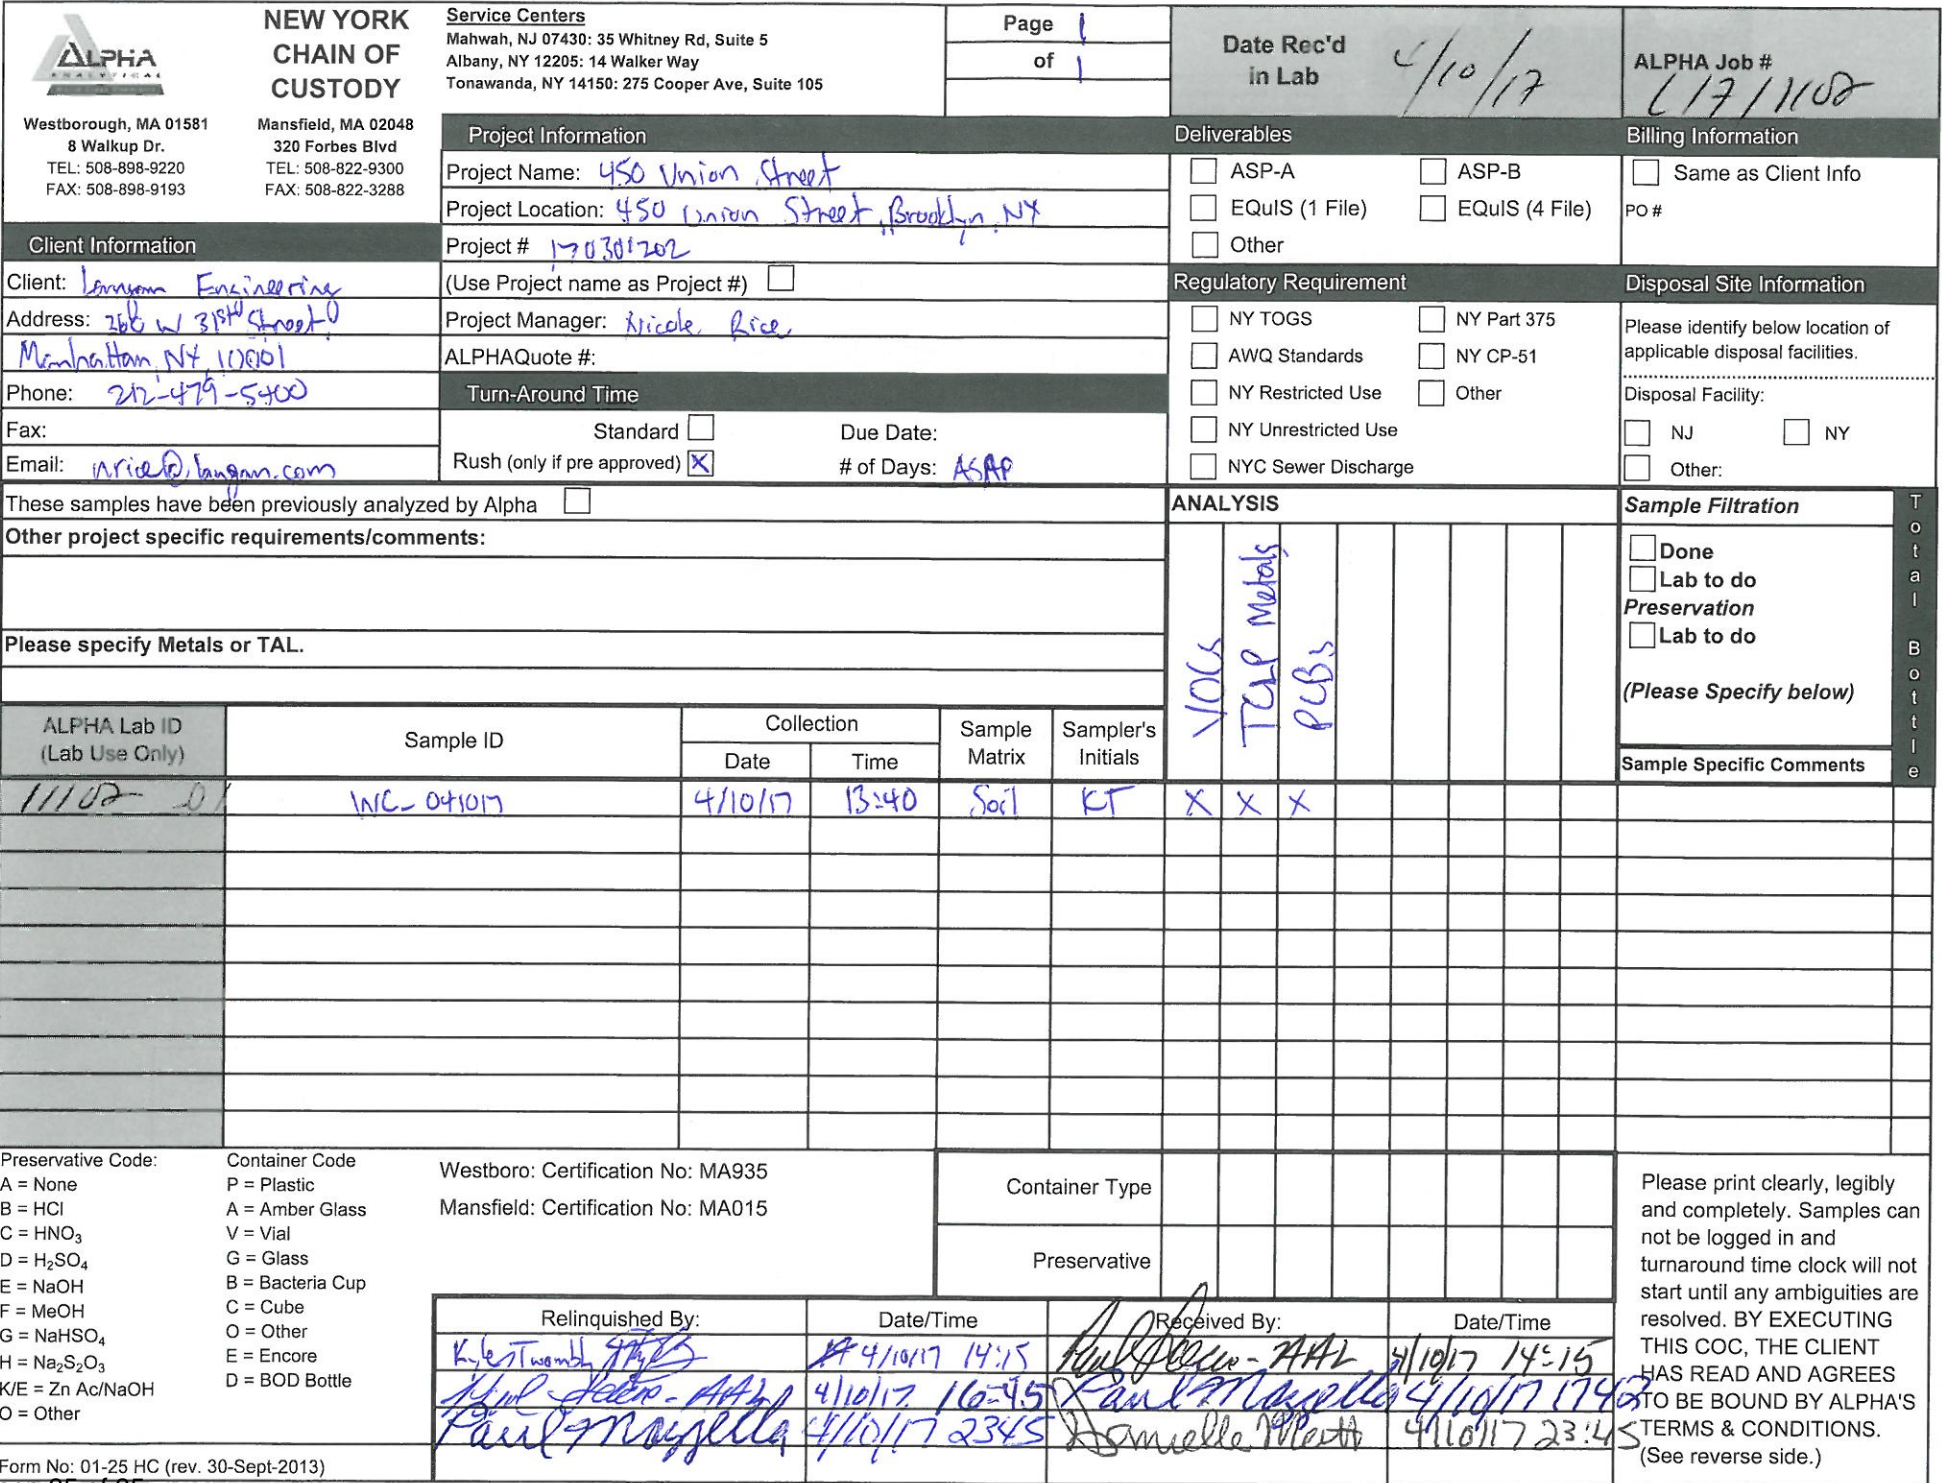 ALPHA
ANALYTICAL
NEW YORK
CHAIN OF
CUSTODY
Westborough, MA 01581
8 Walkup Dr.
TEL: 508-898-9220
FAX: 508-898-9193
Mansfield, MA 02048
320 Forbes Blvd
TEL: 508-822-9300
FAX: 508-822-3288
Service Centers
Mahwah, NJ 07430: 35 Whitney Rd, Suite 5
Albany, NY 12205: 14 Walker Way
Tonawanda, NY 14150: 275 Cooper Ave, Suite 105
Page 1
of 1
Date Rec'd
in Lab 4/10/17
ALPHA Job #
L1711102
Project Information
Project Name: 450 Union Street
Project Location: 450 Union Street, Brooklyn, NY
Project # 170301202
(Use Project name as Project #)
Project Manager: Nicole Rice
ALPHAQuote #:
Turn-Around Time
Standard Due Date:
Rush (only if pre approved) X # of Days: ASAP
Client Information
Client: Langan Engineering
Address: 360 W 31st Street
Manhattan, NY, 10001
Phone: 212-479-5400
Fax:
Email: nrice@langan.com
Deliverables
ASP-A ASP-B
EQuIS (1 File) EQuIS (4 File)
Other
Regulatory Requirement
NY TOGS NY Part 375
AWQ Standards NY CP-51
NY Restricted Use Other
NY Unrestricted Use
NYC Sewer Discharge
Billing Information
Same as Client Info
PO #
Disposal Site Information
Please identify below location of
applicable disposal facilities.
Disposal Facility:
NJ NY
Other:
These samples have been previously analyzed by Alpha
Other project specific requirements/comments:
Please specify Metals or TAL.
ANALYSIS
VOCs
TCLP Metals
PCBs
Sample Filtration
Done
Lab to do
Preservation
Lab to do
(Please Specify below)
Sample Specific Comments
Total Bottle
ALPHA Lab ID
(Lab Use Only)
Sample ID
Collection
Date Time
Sample
Matrix
Sampler's
Initials
11102 01 WC-041017 4/10/17 13:40 Soil KT X X X
Preservative Code:
A = None
B = HCl
C = HNO₃
D = H₂SO₄
E = NaOH
F = MeOH
G = NaHSO₄
H = Na₂S₂O₃
K/E = Zn Ac/NaOH
O = Other
Container Code
P = Plastic
A = Amber Glass
V = Vial
G = Glass
B = Bacteria Cup
C = Cube
O = Other
E = Encore
D = BOD Bottle
Westboro: Certification No: MA935
Mansfield: Certification No: MA015
Container Type
Preservative
Relinquished By: Date/Time Received By: Date/Time
Kyle Twombly 4/10/17 14:15 - AAL 4/10/17 14:15
- AAL 4/10/17 16:45 Paul Mazzella 4/10/17 1742
Paul Mazzella 4/10/17 2345 4/10/17 23:45
Please print clearly, legibly
and completely. Samples can
not be logged in and
turnaround time clock will not
start until any ambiguities are
resolved. BY EXECUTING
THIS COC, THE CLIENT
HAS READ AND AGREES
TO BE BOUND BY ALPHA'S
TERMS & CONDITIONS.
(See reverse side.)
Form No: 01-25 HC (rev. 30-Sept-2013)